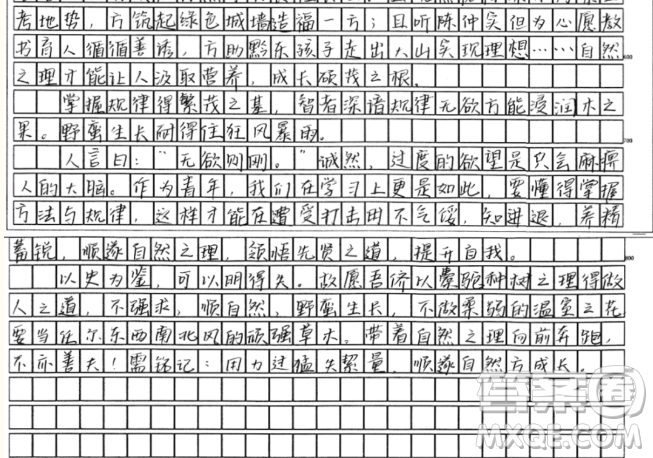 考地势，方筑起绿色城墙造福一方；且听陈仲实但为心愿教
书育人循循善诱，方助黔东孩子走出大山实现理想……自然
之理才能让人汲取营养，成长硕茂之根。
600
掌握规律得繁茂之基，智者深谙规律无欲方能浸润木之
果。野蛮生长耐得住狂风暴雨。
700
人言曰："无欲则刚。"诚然，过度的欲望是只会麻痹
人的大脑。作为青年，我们在学习上更是如此，要懂得掌握
方法与规律，这样才能在遭受打击时不气馁，知进退，养精
蓄锐，顺遂自然之理，领悟先贤之道，提升自我。
800
以史为鉴，可以明得失。故愿吾侪以橐驼种树之理得做
人之道，不强求，顺自然，野蛮生长，不做柔弱的温室之花
要当任尔东西南北风的顽强草木。带着自然之理向前奔跑，
不亦善夫！需铭记：用力过猛失挈量，顺遂自然方成长。
答案圈
MXQE.COM